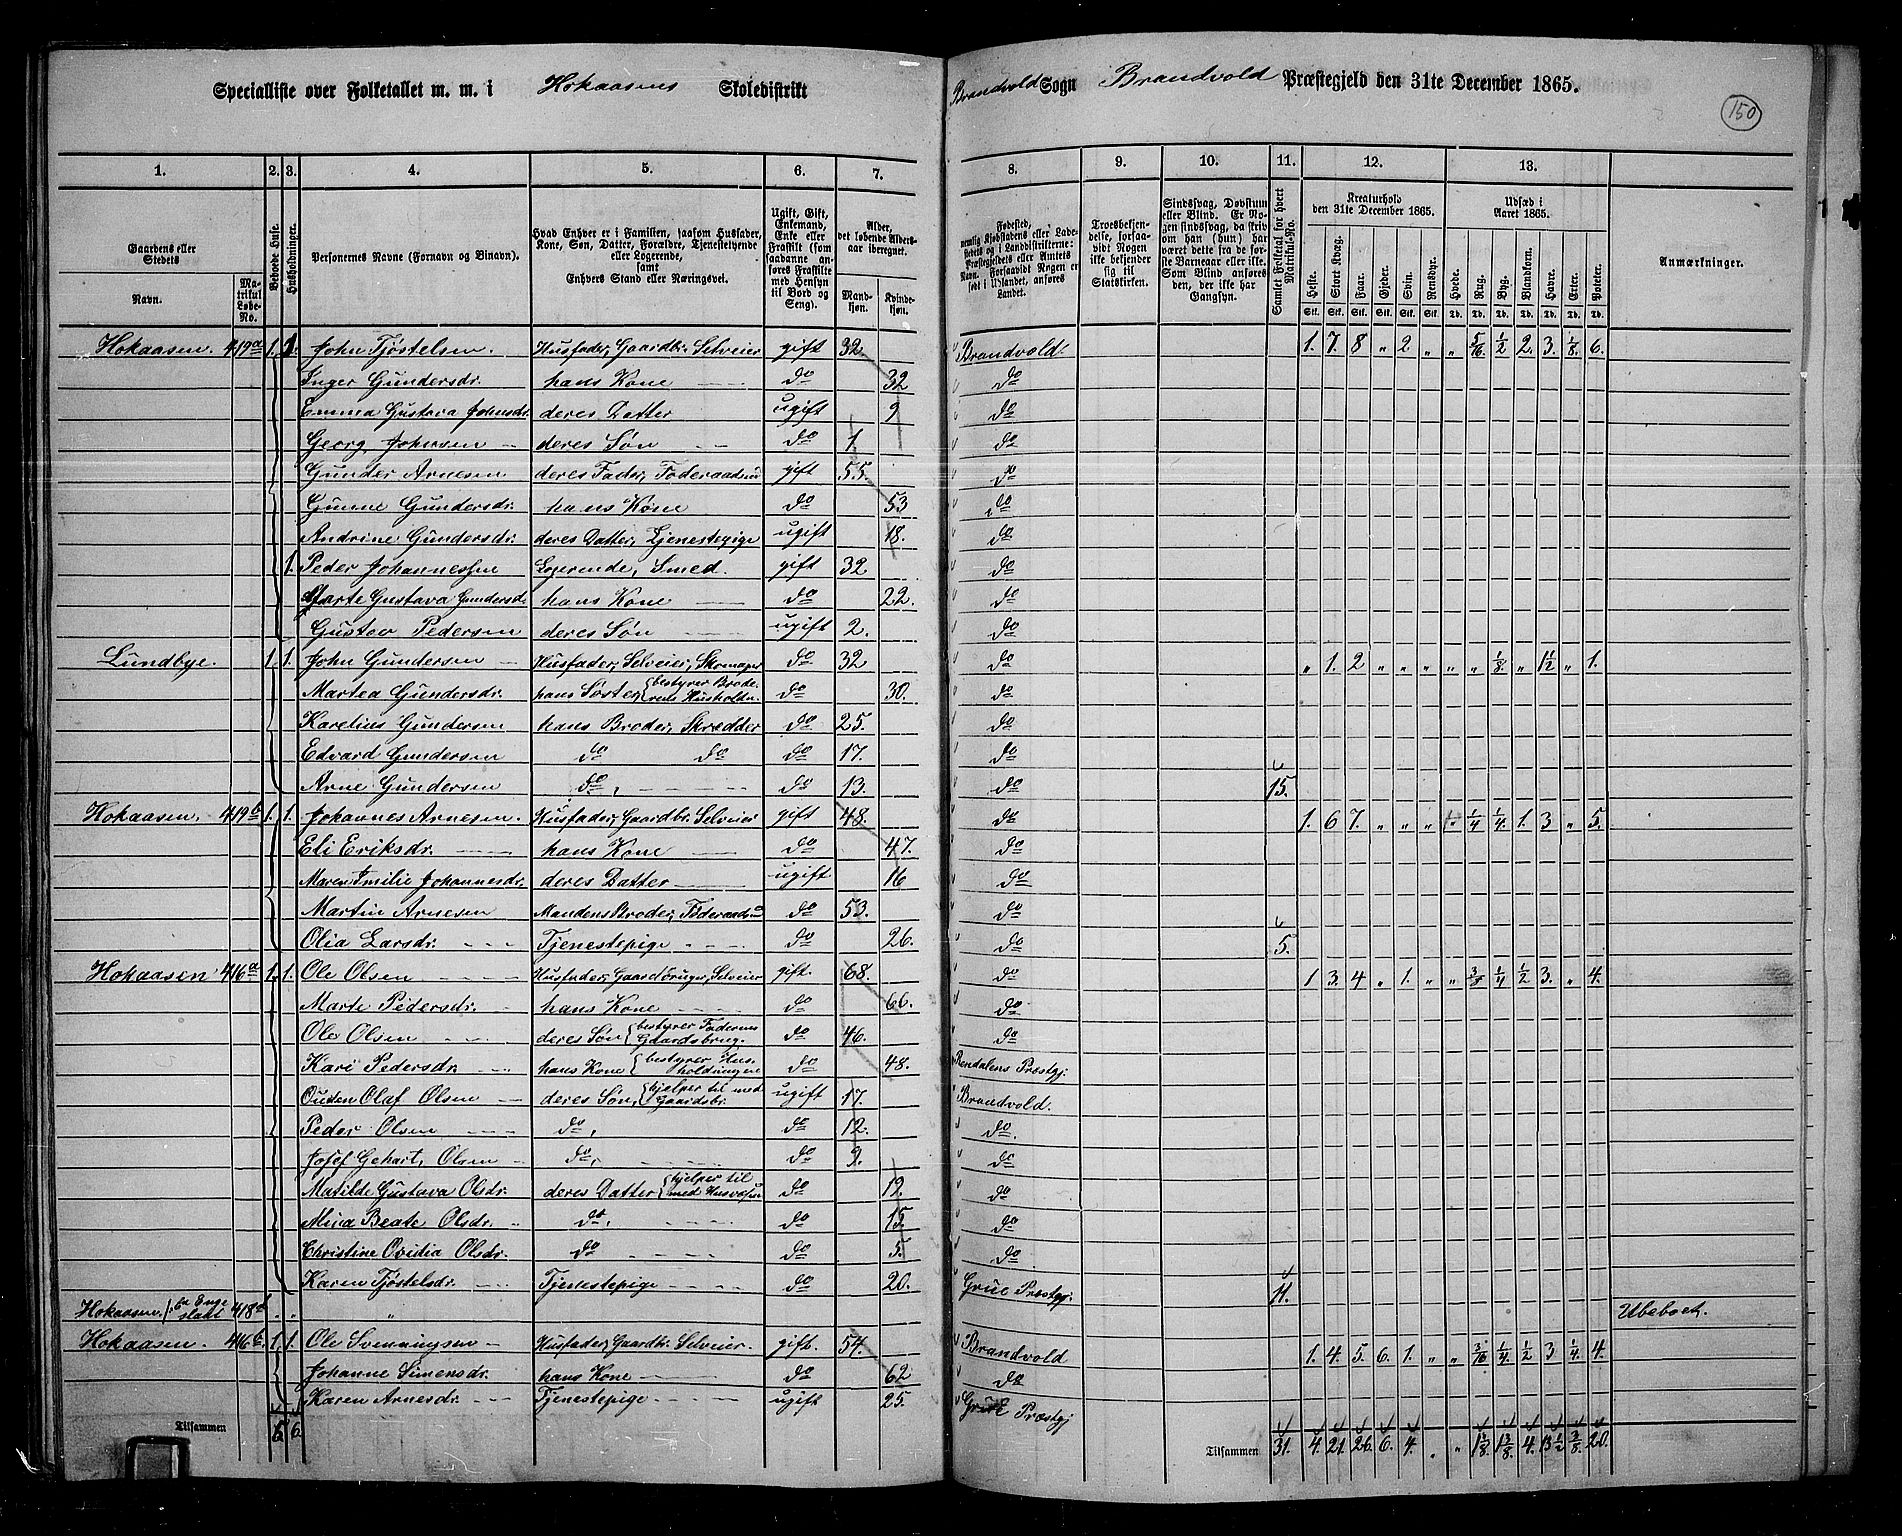 Specialliste over Folketallet m. m. i Hokaasens Skoledistrikt Brandvold Sogn Brandvold Præstegjeld den 31te December 1865.
150
1. 2. 3. 4. 5. 6. 7. 8. 9. 10. 11. 12. 13.
Gaardens eller Stedets Navn. Matrikul Løbe-No. Beboede Huse. Husholdninger. Personernes Navne (Fornavn og Binavn).
Hvad Enhver er i Familien, saasom Husfader, Kone, Søn, Datter, Forældre, Tjenestetyende eller Logerende, samt Enhvers Stand eller Næringsvei.
Ugift, Gift, Enkemand, Enke eller Fraskilt (som saadanne anføres med Hensyn til Bord og Seng).
Alder, det løbende Aldersaar iberegnet. Mandkjøn. Kvindekjøn.
Troesbekjendelse, forsaavidt Nogen ikke bekjender sig til Statskirken.
Samlet Folketal for hvert Matrikul-No.
Kreaturhold den 31te December 1865. Udsæd i Aaret 1865. Anmærkninger.
Heste. Stort Kvæg. Faar. Gjeder. Svin. Rensdyr. Hvede. Rug. Byg. Blandkorn. Havre. Erter. Poteter.
Stk. Stk. Stk. Stk. Stk. Stk. Td. Td. Td. Td. Td. Td. Td.
Hokaasen. 419a 1. 1. John Tjøstelsen. Husfader, Gaardbr. Selveier gift 32 Brandvold. 1. 7. 8 " 2 " " 5/16 1/2 2. 3. 1/8 6.
Inger Gundersdr. hans Kone do 32 do
Emma Gustava Johnsdr. deres Datter ugift 9 do
Georg Johnsen deres Søn do 1. do
Gunder Arnesen deres Fader, Føderaadsmd gift 55. do
Gunne Gundersdr. hans Kone do 53 do
Andrine Gundersdr. deres Datter, Tjenestepige ugift 18. do
1. Peder Johannessen Logerende, Smed. gift 32 do
Marte Gustava Gundersd. hans Kone do 22. do
Gustav Pedersen deres Søn ugift 2. do
Lundbye. 1. 1. John Gundersen Husfader, Selveier, Skomager do 32 do " 1. 2 " " " " " 1/8 " 1 1/2 " 1.
Martea Gundersdr. hans Søster, bestyrer Broderens Husholdn. do 30. do
Karelius Gundersen hans Broder, Skrædder do 25. do
Edvard Gundersen do do do 17. do
Arne Gundersen do. do 13. do 15.
Hokaasen. 419b 1. 1. Johannes Arnesen. Husfader, Gaardbr. Selveier gift 48. do 1. 6 7. " " " " 1/4 1/4. 1. 3 " 5.
Eli Eriksdr. hans Kone do 47. do
Maren Emilie Johannesdr. deres Datter ugift 16 do
Martin Arnesen Mandens Broder, Føderaadsmd do 53. do
Olia Larsdr. Tjenestepige do 26. do 5.
Hokaasen 416a 1. 1. Ole Olsen Husfader, Gaardbruger, Selveier gift. 68. do 1 3. 4 " 1. " " 3/8 1/4 1/2 3. " 4.
Marte Pedersdr. hans Kone do 66. do
Ole Olsen deres Søn bestyrer Faderens Gaardsbrug. do 46. do
Kari Pedersdr. hans Kone bestyrer Husholdningen do 48. Rendalens Præstgj.
Ouden Olaf Olsen deres Søn, hjelper til med Gaardsbr. ugift 17. Brandvold.
Peder Olsen do. do 12. do.
Josef Gehart Olsen do. do 9. do
Matilde Gustava Olsdr. deres Datter hjelper til med Husvæsen do 19. do
Mina Beate Olsdr. do. do 15. do
Christine Ovidia Olsdr. do do 5. do
Karen Tjøstelsdr. Tjenestepige do 20. Grue Præstgj. 11.
Hokaasen, en Engeslaat 418 " " " Ubeboet.
Hokaasen. 416b. 1. 1. Ole Svenningsen Husfader, Gaardbr. Selveier. gift. 54. Brandvold 1. 4. 5. 6. 1. " " 3/16 1/4. 1/2 3 1/4. 4.
Johanne Simensdr. hans Kone do 62 do
Karen Arnesdr. Tjenestepige ugift 25. Grue Præstgj
Tilsammen 5. 6. Tilsammen 31. 4. 21. 26. 6. 4. " " 1 1/8 1 3/8 4. 13 1/2 3/8 20.